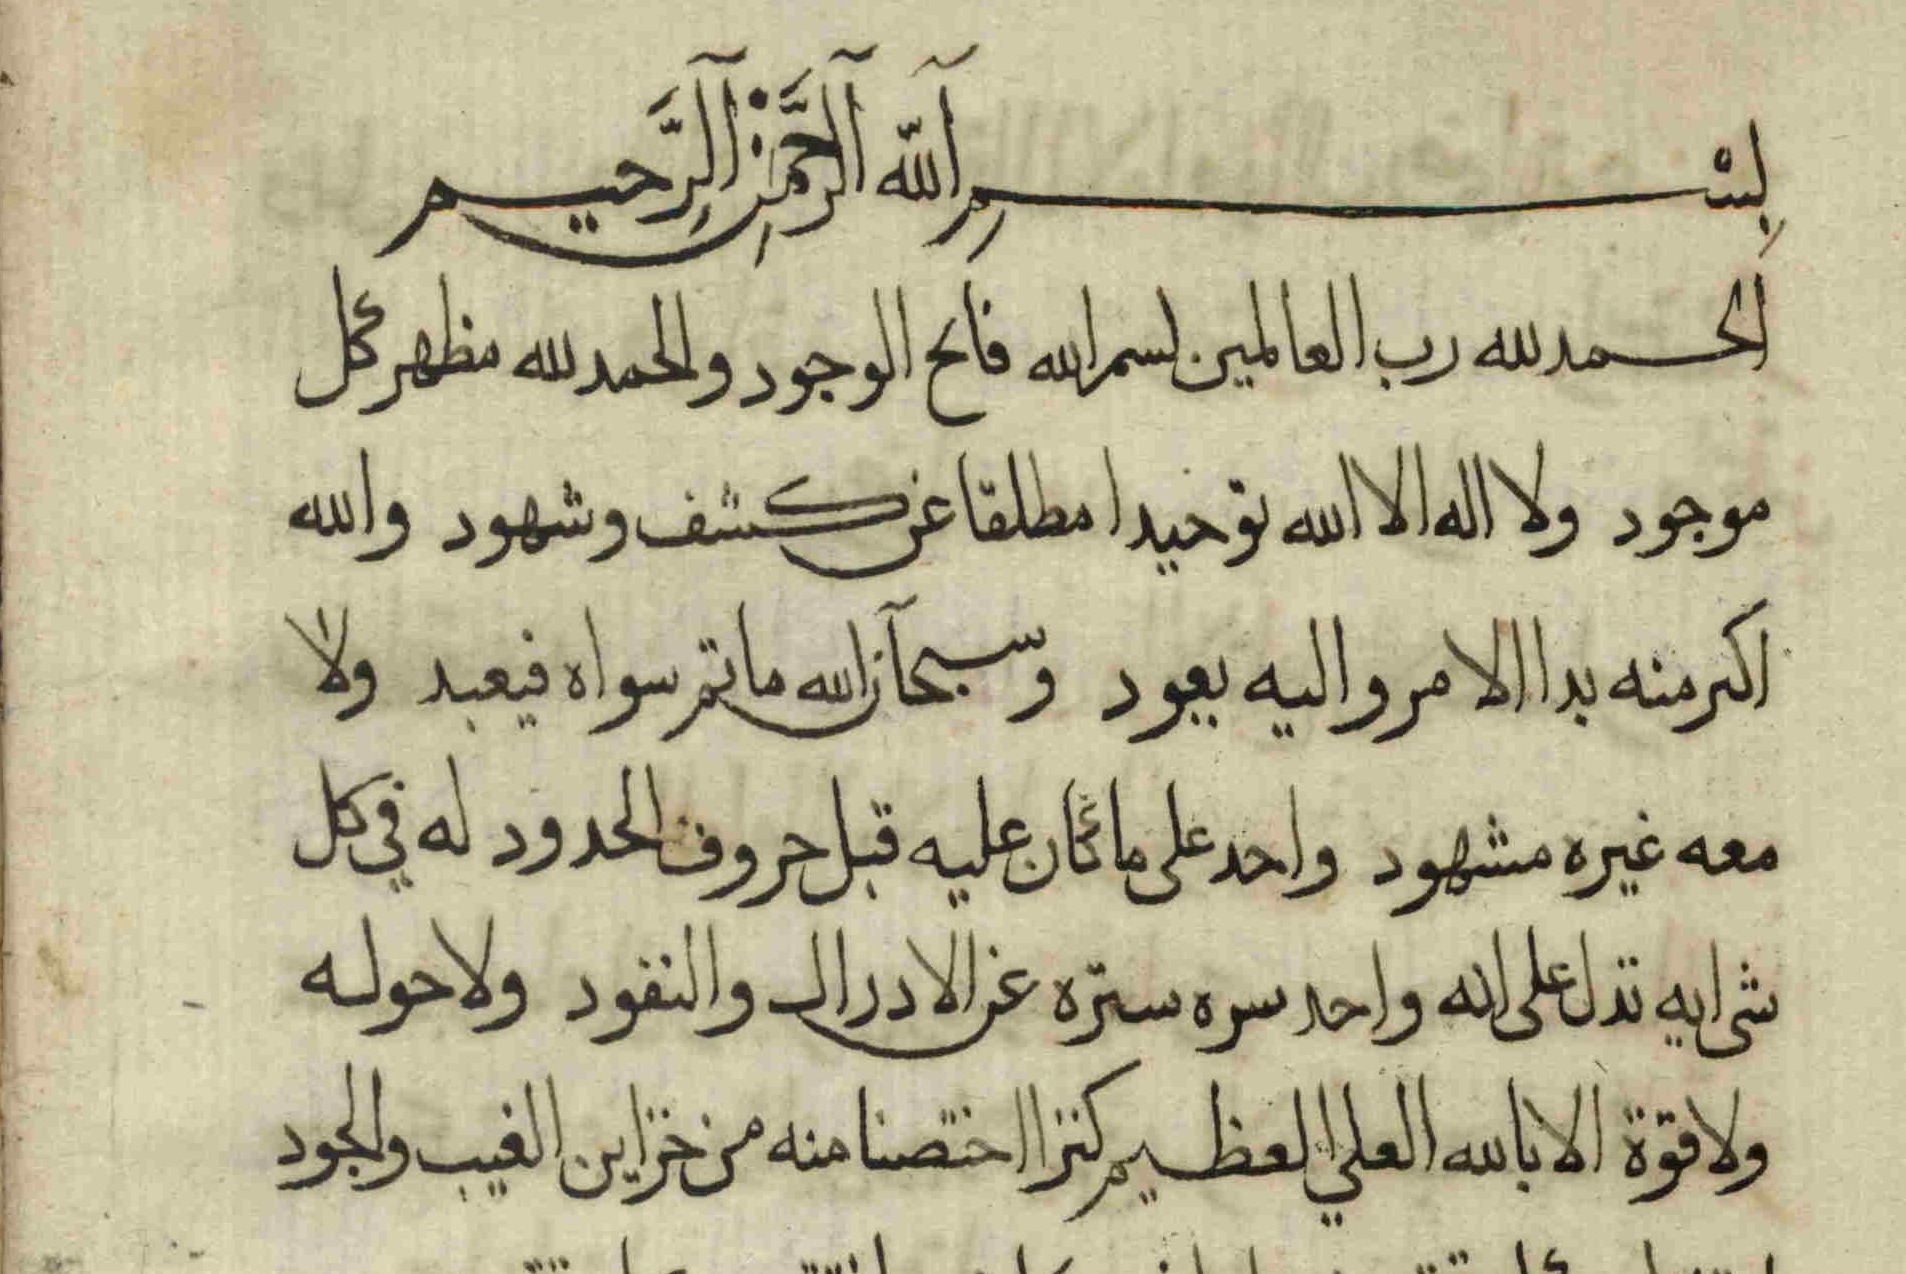 بِسْمِ اللّه الرَّحْمٰنِ الرَّحيم
الحمد لله رب العالمين بسم الله فاتح الوجود والحمد لله مظهر كل
موجود ولا اله الا الله توحيدا مطلقا عن كشف وشهود والله
اكبر منه بدا الامر واليه يعود وسبحان الله ما ثم سواه فيعبد ولا
معه غيره مشهود واحد على ما كان عليه قبل حروف الحدود له في كل
شى ايه تدل على انه واحد سره ستره عن الادراك والنفود ولا حول له
ولا قوة الا بالله العلي العظيم كنزا اختصنا منه من خزاين الغيب والجود